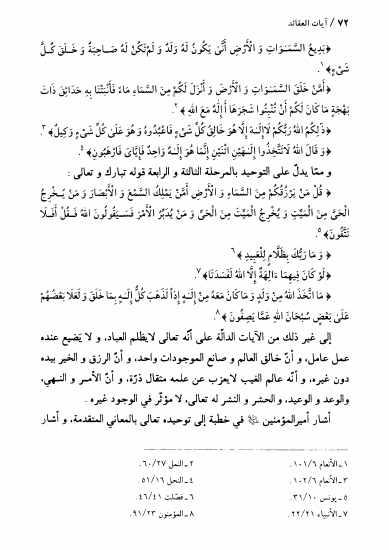 ٧٢ / آيات العقائد
﴿بَدِيعُ السَّمٰوَاتِ وَ الْأَرْضِ أَنَّىٰ يَكُونُ لَهُ وَلَدٌ وَ لَمْ تَكُنْ لَهُ صَاحِبَةٌ وَ خَلَقَ كُلَّ
شَىْءٍ﴾ ١.
﴿أَمَّنْ خَلَقَ السَّمٰوَاتِ وَ الْأَرْضَ وَ أَنْزَلَ لَكُمْ مِنَ السَّمَاءِ مَاءً فَأَنْبَتْنَا بِهِ حَدَائِقَ ذَاتَ
بَهْجَةٍ مَا كَانَ لَكُمْ أَنْ تُنْبِتُوا شَجَرَهَا أَإِلٰهٌ مَعَ اللهِ﴾ ٢.
﴿ذٰلِكُمُ اللهُ رَبُّكُمْ لَا إِلٰهَ إِلَّا هُوَ خَالِقُ كُلِّ شَىْءٍ فَاعْبُدُوهُ وَ هُوَ عَلَىٰ كُلِّ شَىْءٍ وَكِيلٌ﴾ ٣.
﴿وَ قَالَ اللهُ لَا تَتَّخِذُوا إِلٰهَيْنِ اثْنَيْنِ إِنَّمَا هُوَ إِلٰهٌ وَاحِدٌ فَإِيَّاىَ فَارْهَبُونِ﴾ ٤.
و ممّا يدلّ على التوحيد بالمرحلة الثالثة و الرابعة قوله تبارك و تعالى :
﴿قُلْ مَنْ يَرْزُقُكُمْ مِنَ السَّمَاءِ وَ الْأَرْضِ أَمَّنْ يَمْلِكُ السَّمْعَ وَ الْأَبْصَارَ وَ مَنْ يُخْرِجُ
الْحَىَّ مِنَ الْمَيِّتِ وَ يُخْرِجُ الْمَيِّتَ مِنَ الْحَىِّ وَ مَنْ يُدَبِّرُ الْأَمْرَ فَسَيَقُولُونَ اللهُ فَقُلْ أَفَلَا
تَتَّقُونَ﴾ ٥.
﴿وَ مَا رَبُّكَ بِظَلَّامٍ لِلْعَبِيدِ﴾ ٦
﴿لَوْ كَانَ فِيهِمَا ءَالِهَةٌ إِلَّا اللهُ لَفَسَدَتَا﴾ ٧.
﴿مَا اتَّخَذَ اللهُ مِنْ وَلَدٍ وَ مَا كَانَ مَعَهُ مِنْ إِلٰهٍ إِذاً لَذَهَبَ كُلُّ إِلٰهٍ بِمَا خَلَقَ وَ لَعَلَا بَعْضُهُمْ
عَلَىٰ بَعْضٍ سُبْحَانَ اللهِ عَمَّا يَصِفُونَ﴾ ٨.
إلى غير ذلك من الآيات الدالّة على أنّه تعالى لايظلم العباد، و لا يَضيع عنده
عمل عامل، و أنّ خالق العالم و صانع الموجودات واحد، و أنّ الرزق و الخير بيده
دون غيره، و أنّه عالم الغيب لايعزب عن علمه مثقال ذرّة، و أنّ الأمر و النهي،
والوعد و الوعيد، و الحشر و النشر له تعالى، لا مؤثّر في الوجود غيره .
أشار أميرالمؤمنين في خطبة إلى توحيده تعالى بالمعاني المتقدمة، و أشار
١ ـ الأنعام ١٠١/٦. ٢ ـ النمل ٦٠/٢٧.
٣ ـ الأنعام ١٠٢/٦. ٤ ـ النحل ٥١/١٦.
٥ ـ يونس ٣١/١٠. ٦ ـ فصّلت ٤٦/٤١.
٧ ـ الأنبياء ٢٢/٢١. ٨ ـ المؤمنون ٩١/٢٣.